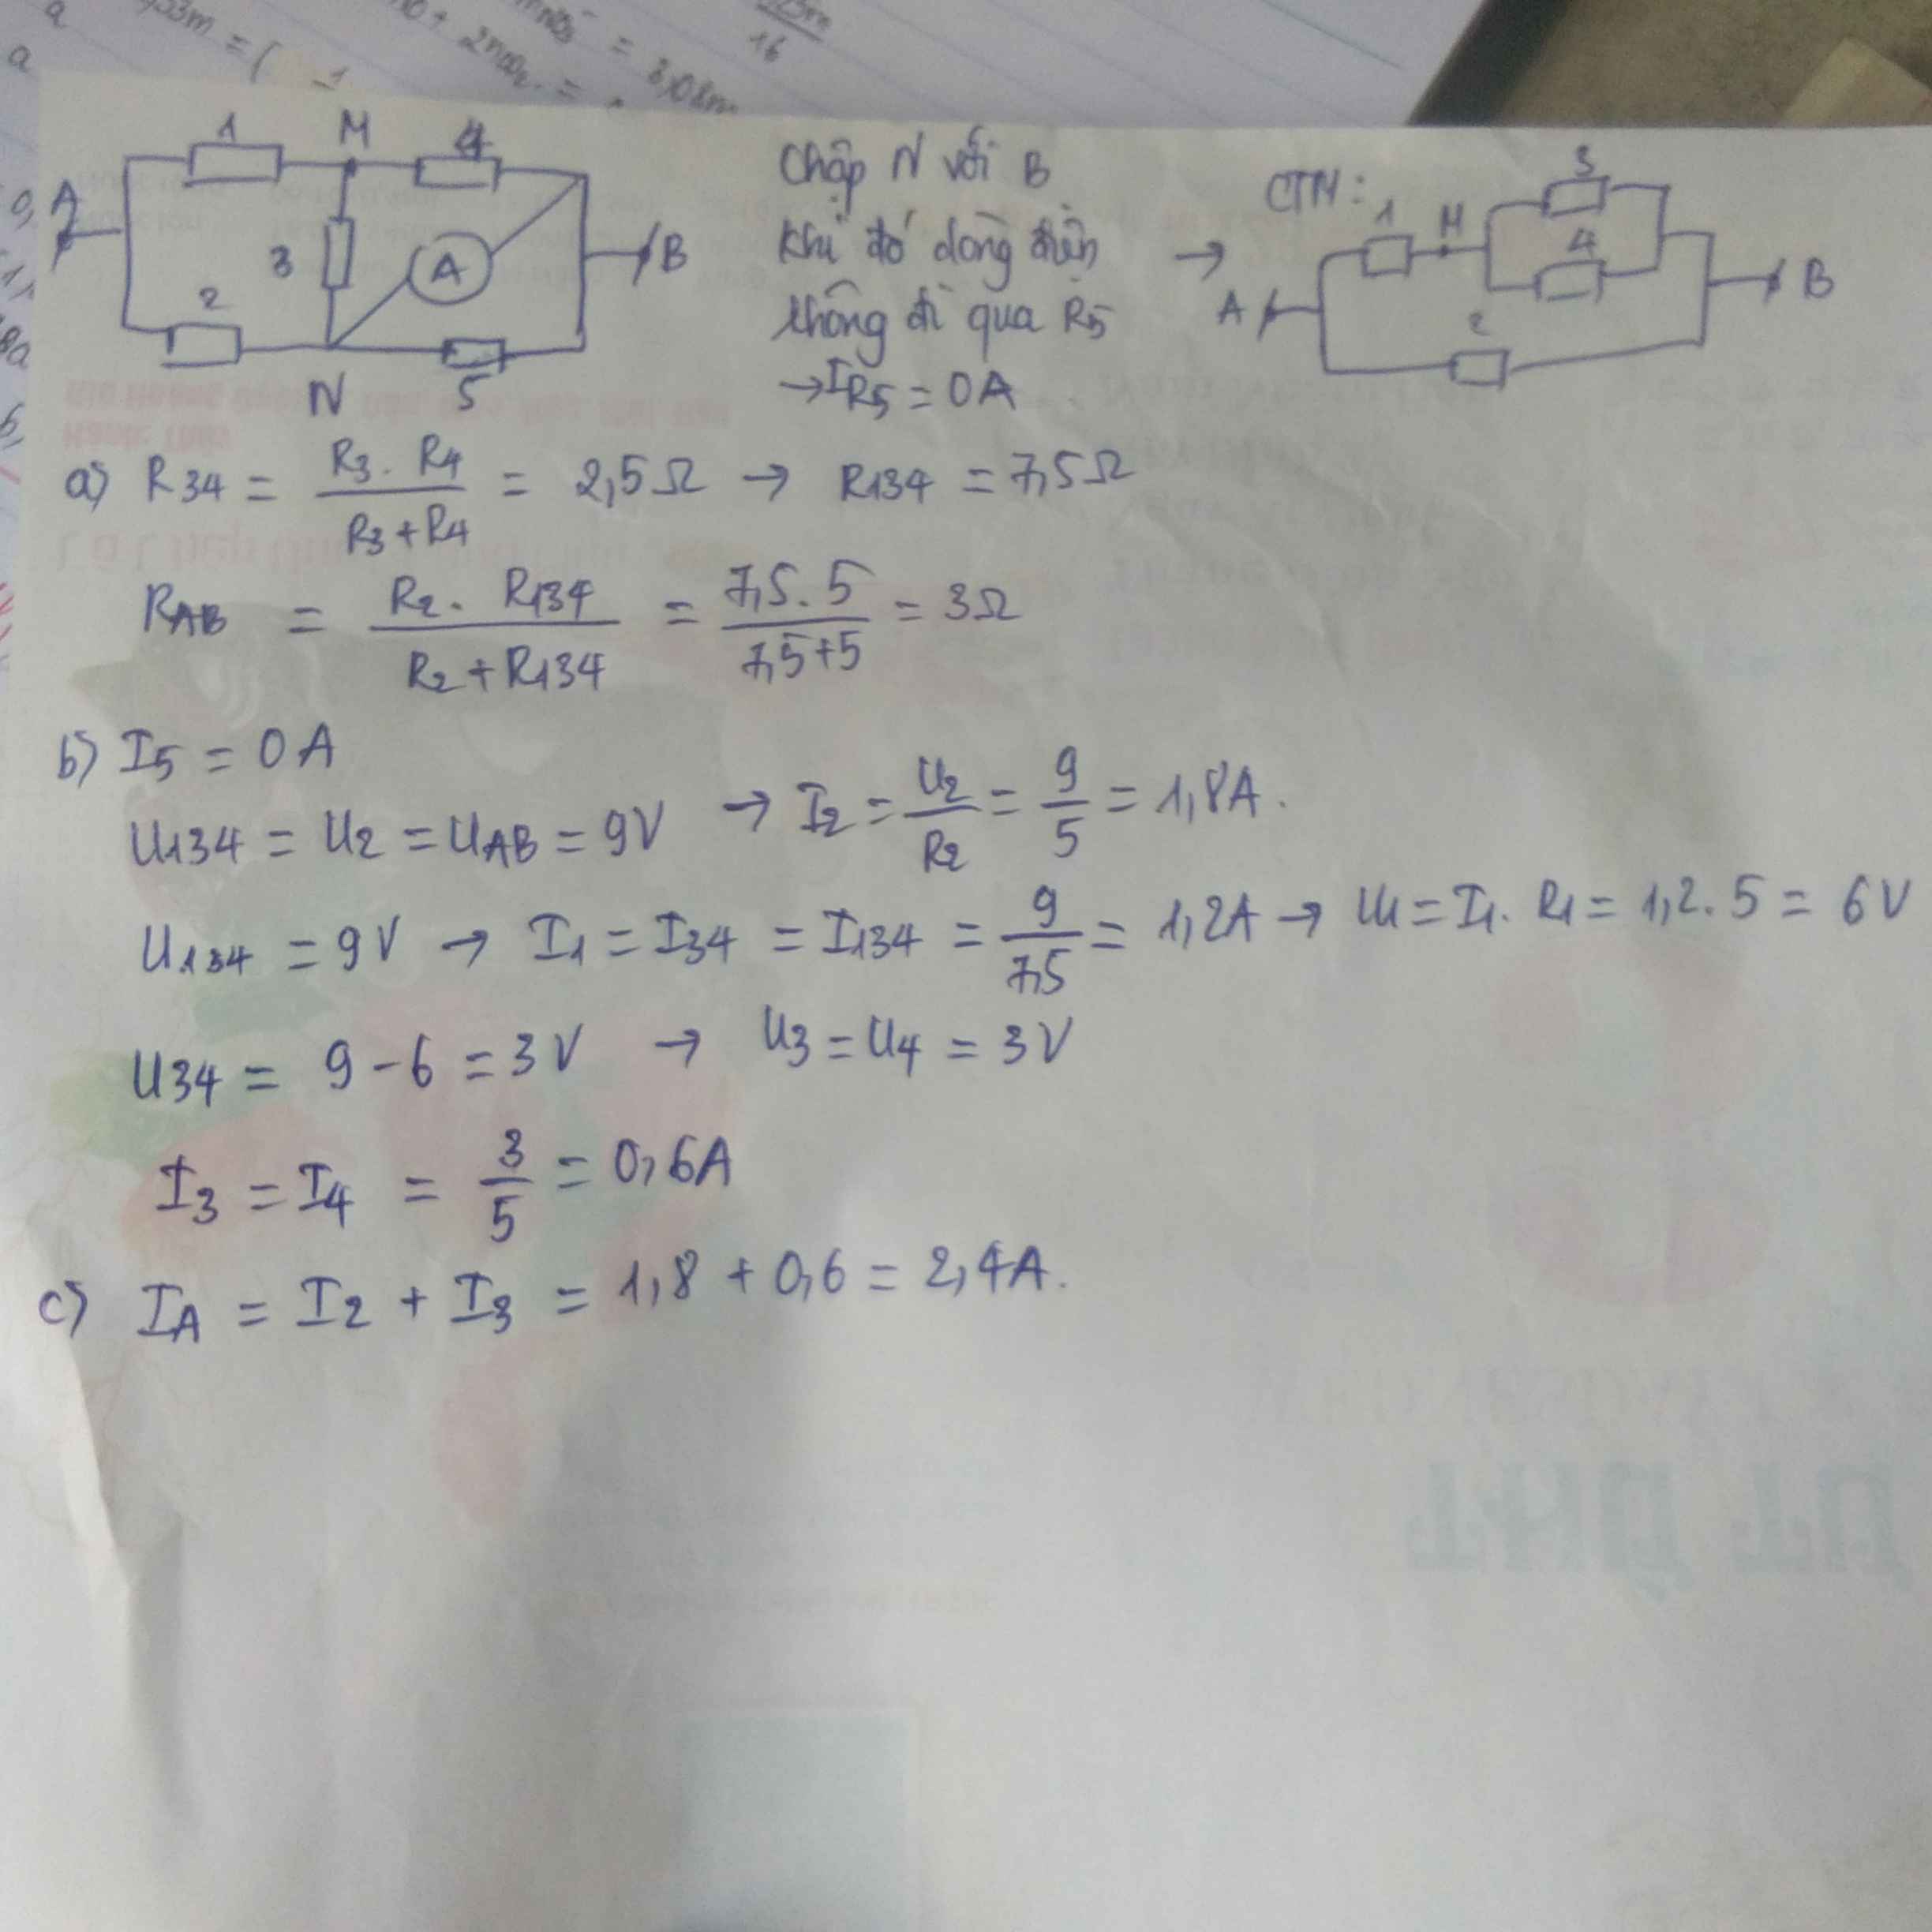 53m = (
2nCO2 =
= 3,08m
16
1 M 4
A 3 A B
2
N 5
Chập N với B
khi đó dòng điện
không đi qua R5
→ IR5 = 0A
→ CTM: 1 M 3
4
A B
2
a) R34 = R3 . R4 / R3 + R4 = 2,5Ω → R134 = 7,5Ω
RAB = R2 . R134 / R2 + R134 = 7,5 . 5 / 7,5 + 5 = 3Ω
b) I5 = 0A
U134 = U2 = UAB = 9V → I2 = U2 / R2 = 9 / 5 = 1,8A.
U134 = 9V → I1 = I34 = I134 = 9 / 7,5 = 1,2A → U1 = I1 . R1 = 1,2 . 5 = 6V
U34 = 9 - 6 = 3V → U3 = U4 = 3V
I3 = I4 = 3 / 5 = 0,6A
c) IA = I2 + I3 = 1,8 + 0,6 = 2,4A.